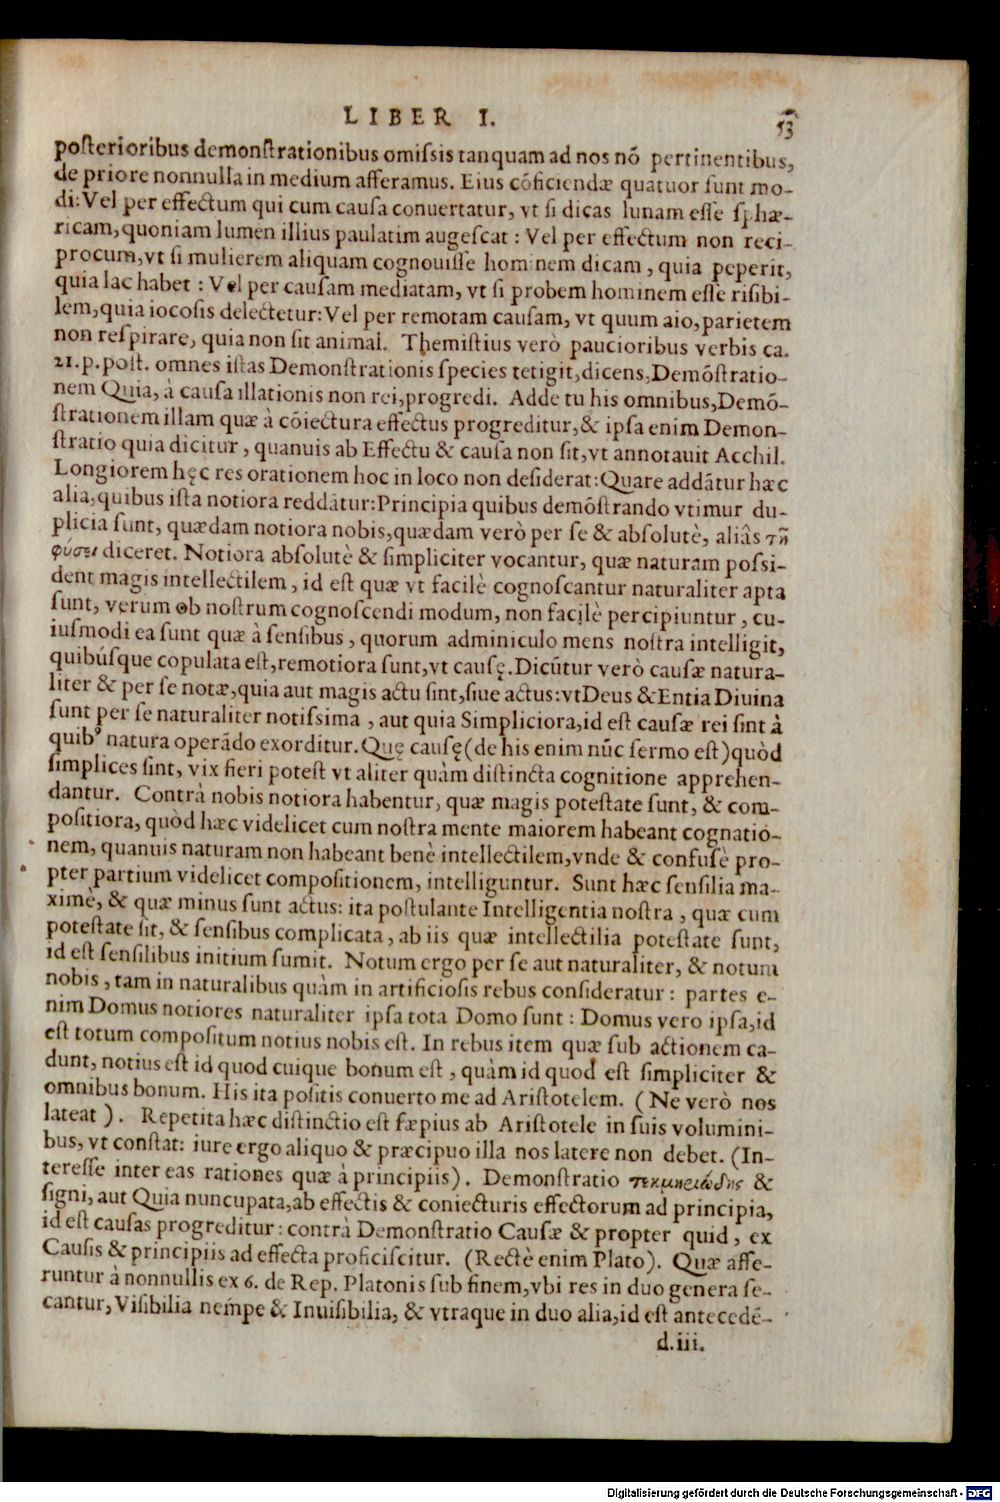 LIBER I.
53
posterioribus demonstrationibus omissis tanquam ad nos nō pertinentibus,
de priore nonnulla in medium afferamus. Eius cōficiendæ quatuor sunt mo-
di: Vel per effectum qui cum causa conuertatur, vt si dicas lunam esse sphæ-
ricam, quoniam lumen illius paulatim augescat : Vel per effectum non reci-
procum, vt si mulierem aliquam cognouisse hominem dicam, quia peperit,
quia lac habet : Vel per causam mediatam, vt si probem hominem esse risibi-
lem, quia iocosis delectetur: Vel per remotam causam, vt quum aio, parietem
non respirare, quia non sit animal. Themistius verò paucioribus verbis ca.
21. p. post. omnes istas Demonstrationis species tetigit, dicens, Demōstratio-
nem Quia, à causa illationis non rei, progredi. Adde tu his omnibus, Demō-
strationem illam quæ à cōiectura effectus progreditur, & ipsa enim Demon-
stratio quia dicitur, quanuis ab Effectu & causa non sit, vt annotauit Acchil.
Longiorem hęc res orationem hoc in loco non desiderat: Quare addātur hæc
alia, quibus ista notiora reddātur: Principia quibus demōstrando vtimur du-
plicia sunt, quædam notiora nobis, quædam verò per se & absolutè, aliâs τῇ
φύσει diceret. Notiora absolutè & simpliciter vocantur, quæ naturam possi-
dent magis intellectilem, id est quæ vt facilè cognoscantur naturaliter apta
sunt, verum ob nostrum cognoscendi modum, non facilè percipiuntur, cu-
iusmodi ea sunt quæ à sensibus, quorum adminiculo mens nostra intelligit,
quibúsque copulata est, remotiora sunt, vt causę. Dicūtur verò causæ natura-
liter & per se notæ, quia aut magis actu sint, siue actus: vt Deus & Entia Diuina
sunt per se naturaliter notissima, aut quia Simpliciora, id est causæ rei sint à
quib⁹ natura operādo exorditur. Quę causę (de his enim nūc sermo est) quòd
simplices sint, vix fieri potest vt aliter quàm distincta cognitione apprehen-
dantur. Contrà nobis notiora habentur, quæ magis potestate sunt, & com-
positiora, quòd hæc videlicet cum nostra mente maiorem habeant cognatio-
nem, quanuis naturam non habeant benè intellectilem, vnde & confusè pro-
pter partium videlicet compositionem, intelliguntur. Sunt hæc sensilia ma-
ximè, & quæ minus sunt actus: ita postulante Intelligentia nostra, quæ cum
potestate sit, & sensibus complicata, ab iis quæ intellectilia potestate sunt,
id est sensilibus initium sumit. Notum ergo per se aut naturaliter, & notum
nobis, tam in naturalibus quàm in artificiosis rebus consideratur : partes e-
nim Domus notiores naturaliter ipsa tota Domo sunt : Domus vero ipsa, id
est totum compositum notius nobis est. In rebus item quæ sub actionem ca-
dunt, notius est id quod cuique bonum est, quàm id quod est simpliciter &
omnibus bonum. His ita positis conuerto me ad Aristotelem. (Ne verò nos
lateat). Repetita hæc distinctio est sæpius ab Aristotele in suis volumini-
bus, vt constat: iure ergo aliquo & præcipuo illa nos latere non debet. (In-
teresse inter eas rationes quæ à principiis). Demonstratio τεκμηειώδης &
signi, aut Quia nuncupata, ab effectis & coniecturis effectorum ad principia,
id est causas progreditur : contrà Demonstratio Causæ & propter quid, ex
Causis & principiis ad effecta proficiscitur. (Rectè enim Plato). Quæ affe-
runtur à nonnullis ex 6. de Rep. Platonis sub finem, vbi res in duo genera se-
cantur, Visibilia nempe & Inuisibilia, & vtraque in duo alia, id est antecedē-
d.iii.
Digitalisierung gefördert durch die Deutsche Forschungsgemeinschaft - DFG